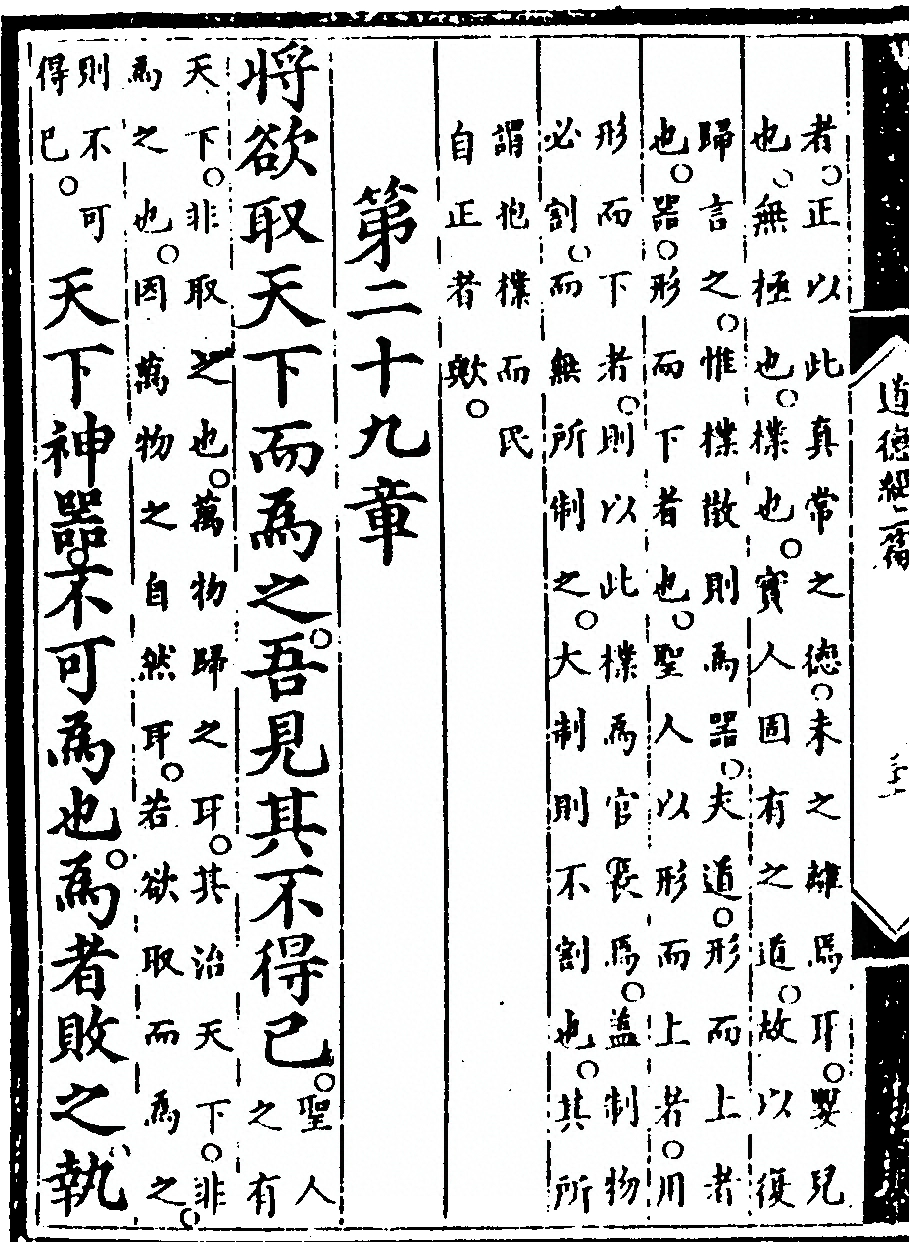 者。正以此真常之德。未之離焉耳。嬰兒
也。無極也。樸也。實人固有之道。故以復
歸言之。惟樸散則為器。夫道。形而上者
也。器。形而下者也。聖人以形而上者。用
形而下者。則以此樸為官長焉。蓋制物
必割。而無所制之。大制則不割也。其所
謂抱樸而民
自正者歟。
第二十九章
將欲取天下而為之。吾見其不得已。聖人
之有
天下。非取之也。萬物歸之耳。其治天下。非
為之也。因萬物之自然耳。若欲取而為之。
則不可
得已。
天下神器。不可為也。為者敗之執
道德經二篇